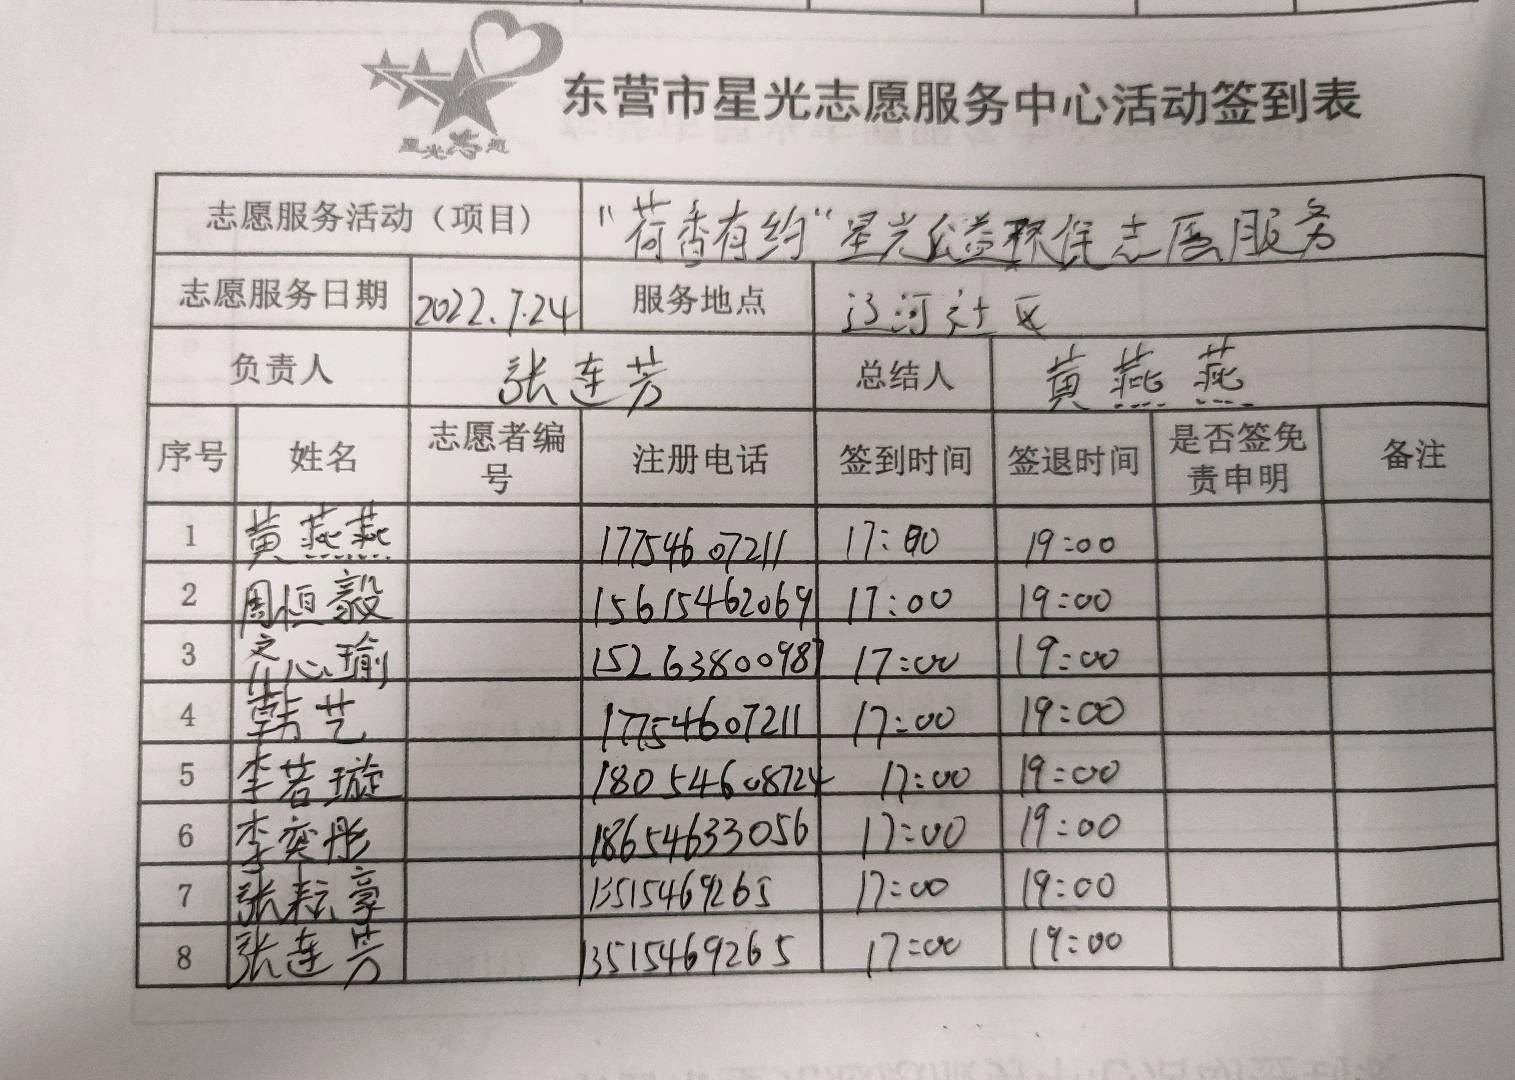 星光志愿
东营市星光志愿服务中心活动签到表
志愿服务活动（项目） "荷香有约"星光公益环保志愿服务
志愿服务日期 2022.7.24 服务地点 辽河社区
负责人 张连芳 总结人 黄燕燕
序号 姓名 志愿者编号 注册电话 签到时间 签退时间 是否签免责申明 备注
1 黄燕燕 17754607211 17:00 19:00
2 周恒毅 15615462069 17:00 19:00
3 心瑜 15263800987 17:00 19:00
4 韩艺 17754607211 17:00 19:00
5 李若璇 18054608724 17:00 19:00
6 李奕彤 18654633056 17:00 19:00
7 张耘豪 13515469265 17:00 19:00
8 张连芳 13515469265 17:00 19:00